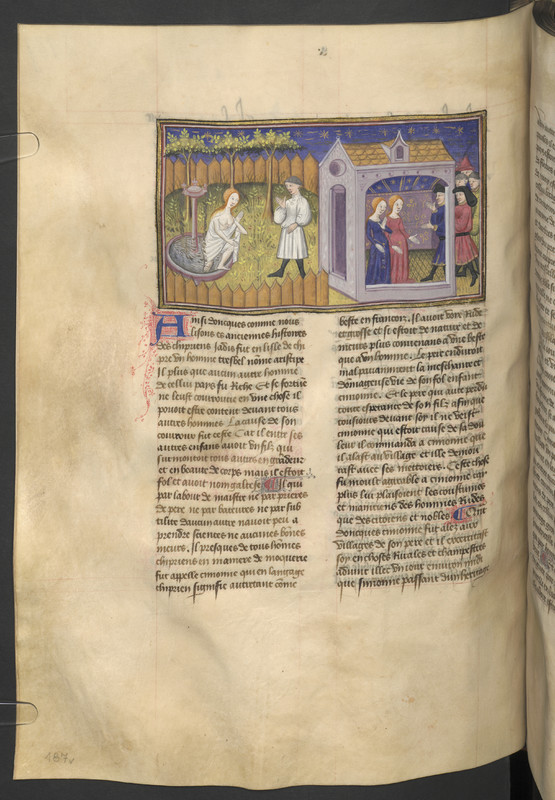 Ainsi doncques comme nous
lisons es anciennes histoires
des chipriens Jadis fut en lisle de chi
pre un homme tresbel nōme aristipe
Il plus que aucun autre homme
de cellui pays fu Riche Et se fortune
ne leust courroucie en une chose il
povoit estre content devant tous
autres hommes La cause de son
courroux fut ceste Car il entre ses
autres enfans avoit un filz qui
surmontoit tous autres en grādeur
et en beaute de corps mais il estoit
fol et avoit nom galeise Il qui
par labour de maistre ne par prieres
de pere ne par bateures ne par sub
tilite daucun autre navoit peu a
prendre sciences ne aucunes bōnes
meurs. Il presques de tous hōmes
chipriens en maniere de mocquerie
fut appelle cimonne qui en langage
chiprien signifie autretant cōme
beste en francois. Il avoit voix Rude
et grosse et si estoit de nature et de
meurs plus convenans a une beste
que a un homme. Le pere enduroit
mal paciamment la meschante et
dommageuse vie de son fol enfant
cimonne. Et le pere qui avoit perdu
toute esperance de son filz afin que
tousiours devant soy il ne veist
cimonne qui estoit cause de sa dou
leur il commanda a cimonne que
il alast au village et ille demou
rast avec ses mettoiers. Ceste chose
fu moult agreable a cimonne car
plus lui plaisoient les coustumes
et manieres des hommes Rudes
que des citoiens et nobles. Cum
doncques cimonne fut ale aux
villages de son pere et il excercitast
soy en choses Rurales et champestres
advint illec un iour environ midi
que cimonne passant dun heritage
487v